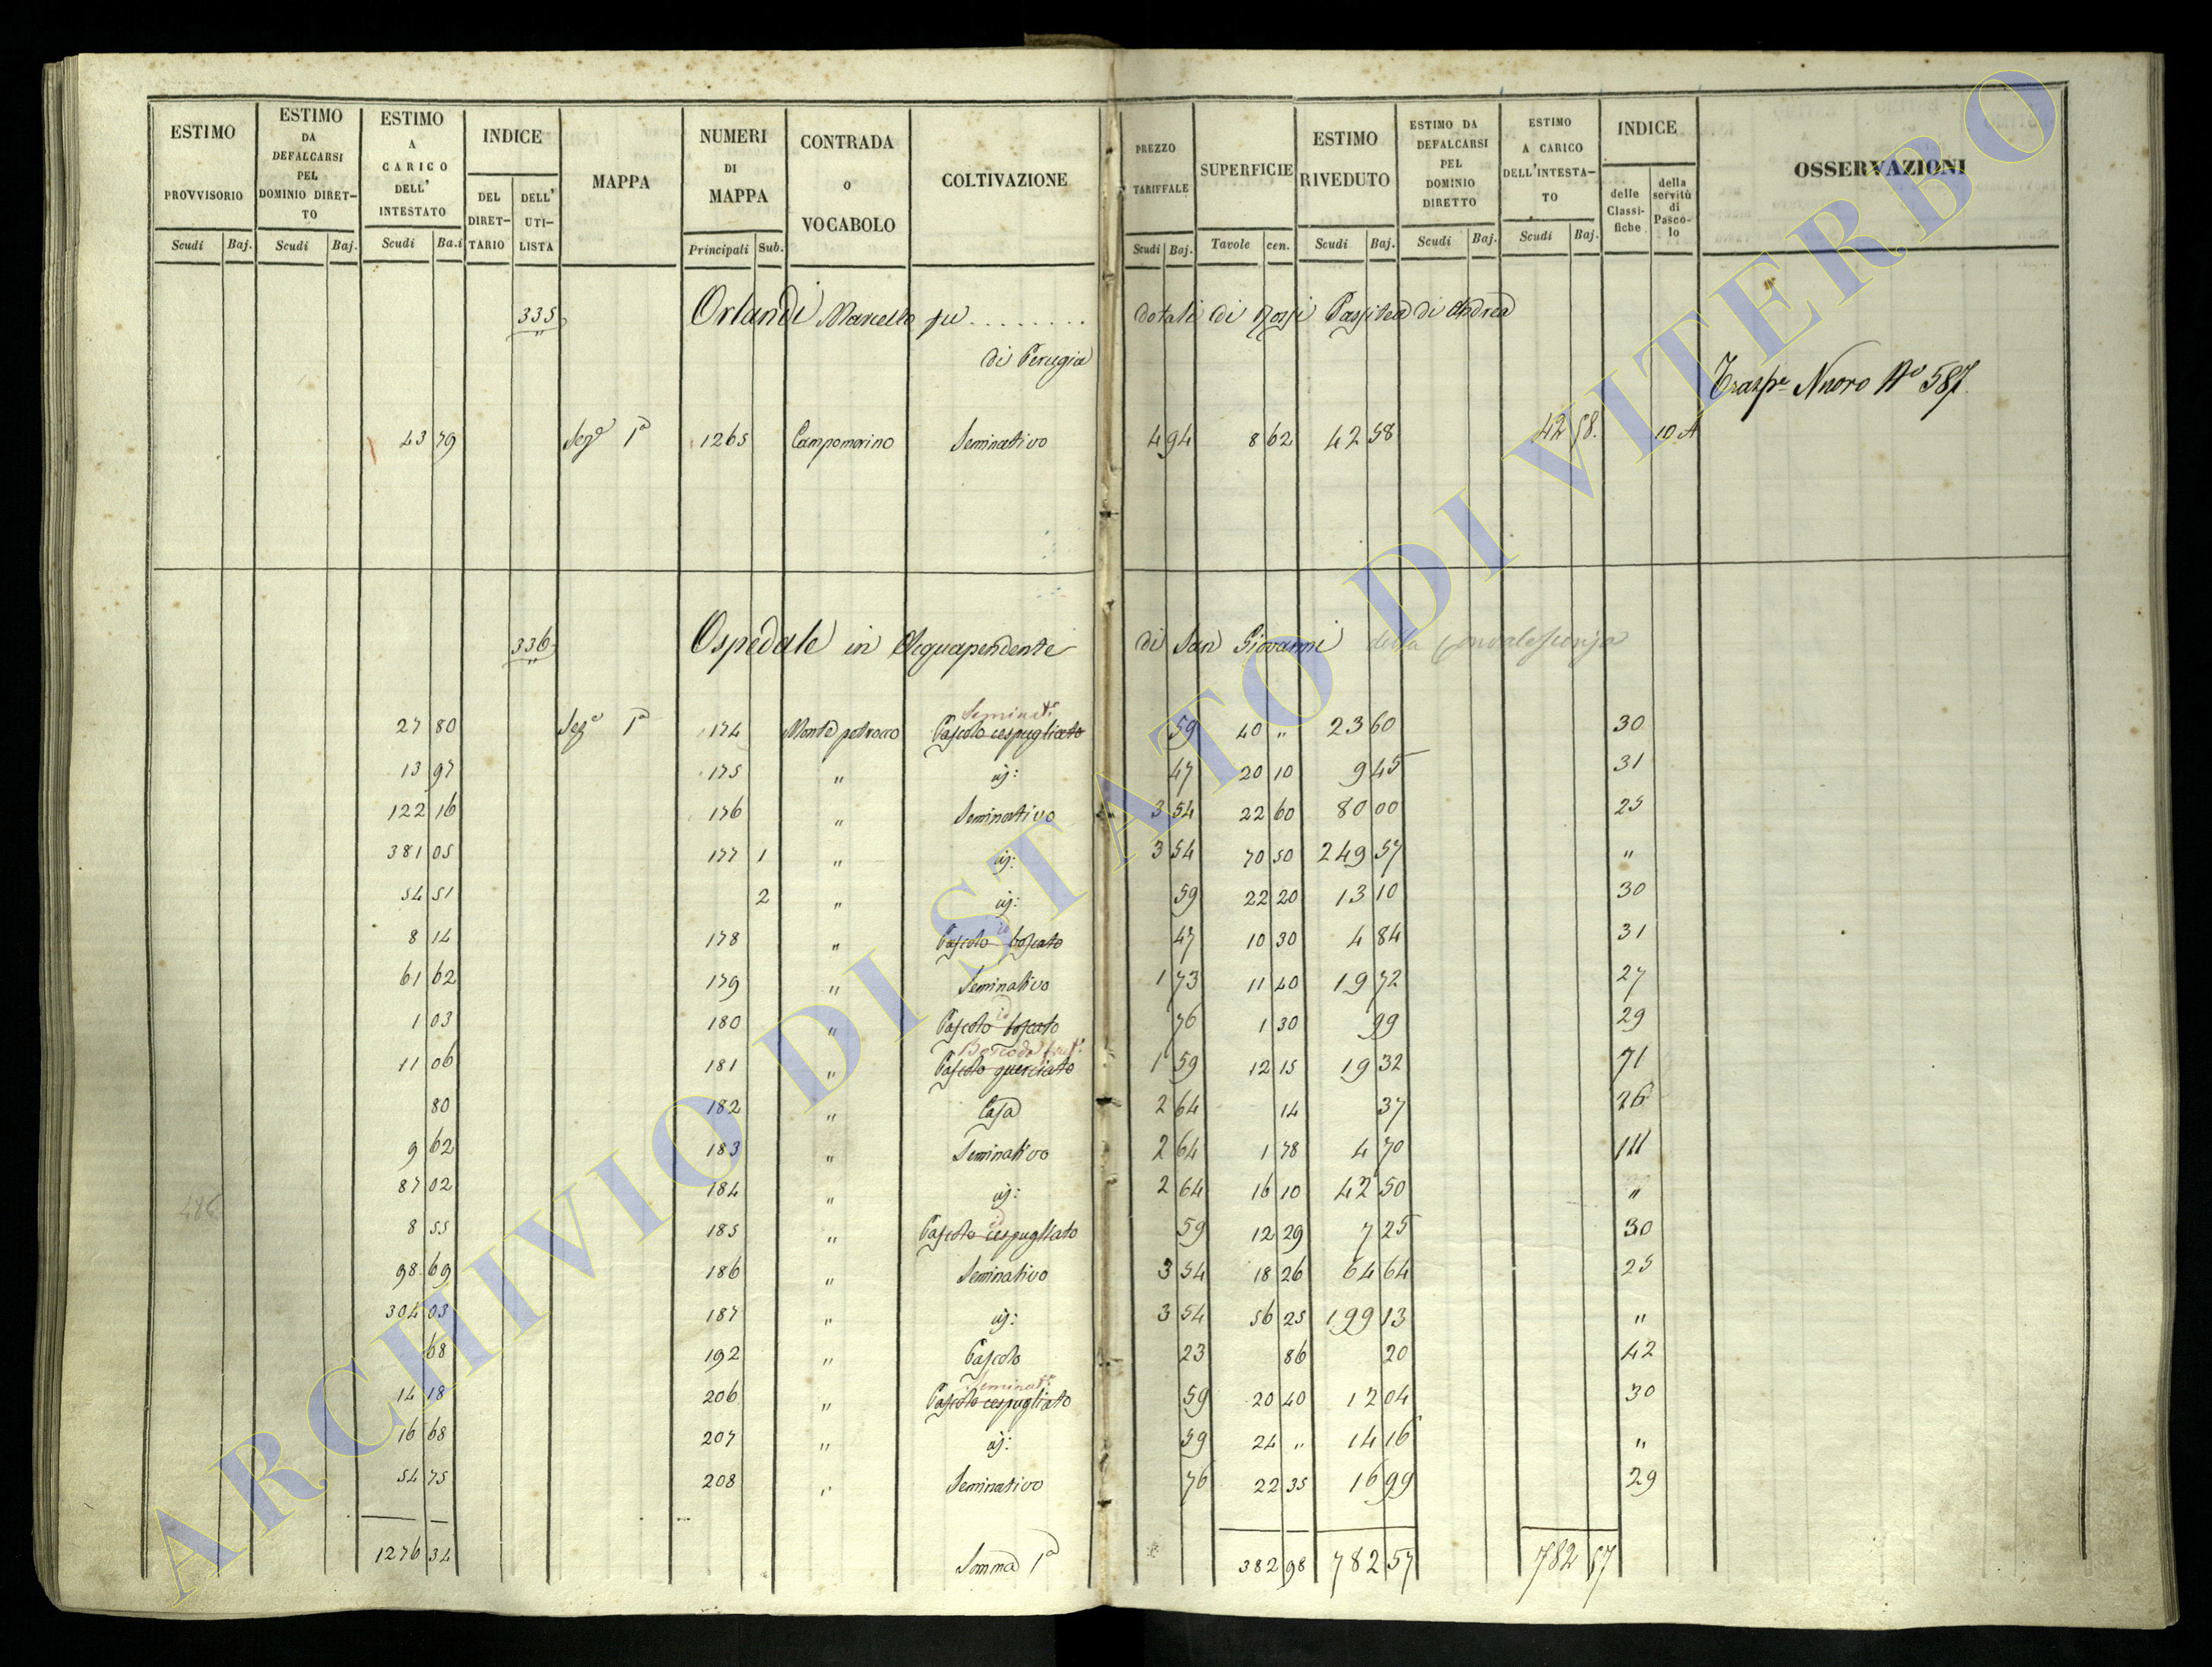 ESTIMO PROVVISORIO Scudi Baj.
ESTIMO DA DEFALCARSI PEL DOMINIO DIRET-TO Scudi Baj.
ESTIMO A CARICO DELL' INTESTATO Scudi Ba.i
INDICE DEL DIRET-TARIO DELL' UTI-LISTA
MAPPA
NUMERI DI MAPPA Principali Sub.
CONTRADA O VOCABOLO
COLTIVAZIONE
PREZZO TARIFFALE Scudi Baj.
SUPERFICIE Tavole cen.
ESTIMO RIVEDUTO Scudi Baj.
ESTIMO DA DEFALCARSI PEL DOMINIO DIRETTO Scudi Baj.
ESTIMO A CARICO DELL'INTESTA-TO Scudi Baj.
INDICE delle Classi-fiche della servitù di Pasco-lo
OSSERVAZIONI
335 Orlandi Marcello fu ........ dotali di Rossi Passitea di Andrea
di Perugia
Trasp.e Nuovo N° 587.
43 79 Sez.e 1a 1265 Campomorino Seminativo 4 94 8 62 42 58 42 58. 10 A
336 Ospedale in Acquapendente di San Giovanni della Convalescenza
Seminat.o
27 80 Sez.e 1a 174 Monte petrocco Pascolo cespugliato 59 40 " 23 60 30
13 97 175 " id: 47 20 10 9 45 31
122 16 176 " Seminativo 3 54 22 60 80 00 25
381 05 177 1 " id: 3 54 70 50 249 57 "
54 51 2 " id: 59 22 20 13 10 30
id
8 14 178 " Pascolo boscato 47 10 30 4 84 31
61 62 179 " Seminativo 1 73 11 40 19 72 27
id
1 03 180 " Pascolo boscato 76 1 30 99 29
Bosco da frut.o
11 06 181 " Pascolo querciato 1 59 12 15 19 32 71
80 182 " Casa 2 64 14 37 26
9 62 183 " Seminativo 2 64 1 78 4 70 111
87 02 184 " id: 2 64 16 10 42 50 "
id
486 8 55 185 " Pascolo cespugliato 59 12 29 7 25 30
98 69 186 " Seminativo 3 54 18 26 64 64 25
304 03 187 " id: 3 54 56 25 199 13 "
68 192 " Pascolo 23 86 20 42
Seminat.o
14 18 206 " Pascolo cespugliato 59 20 40 12 04 30
16 68 207 " id: 59 24 " 14 16 "
54 75 208 " Seminativo 76 22 35 16 99 29
1276 34 Somma 1a 382 98 782 57 782 57
ARCHIVIO DI STATO DI VITERBO